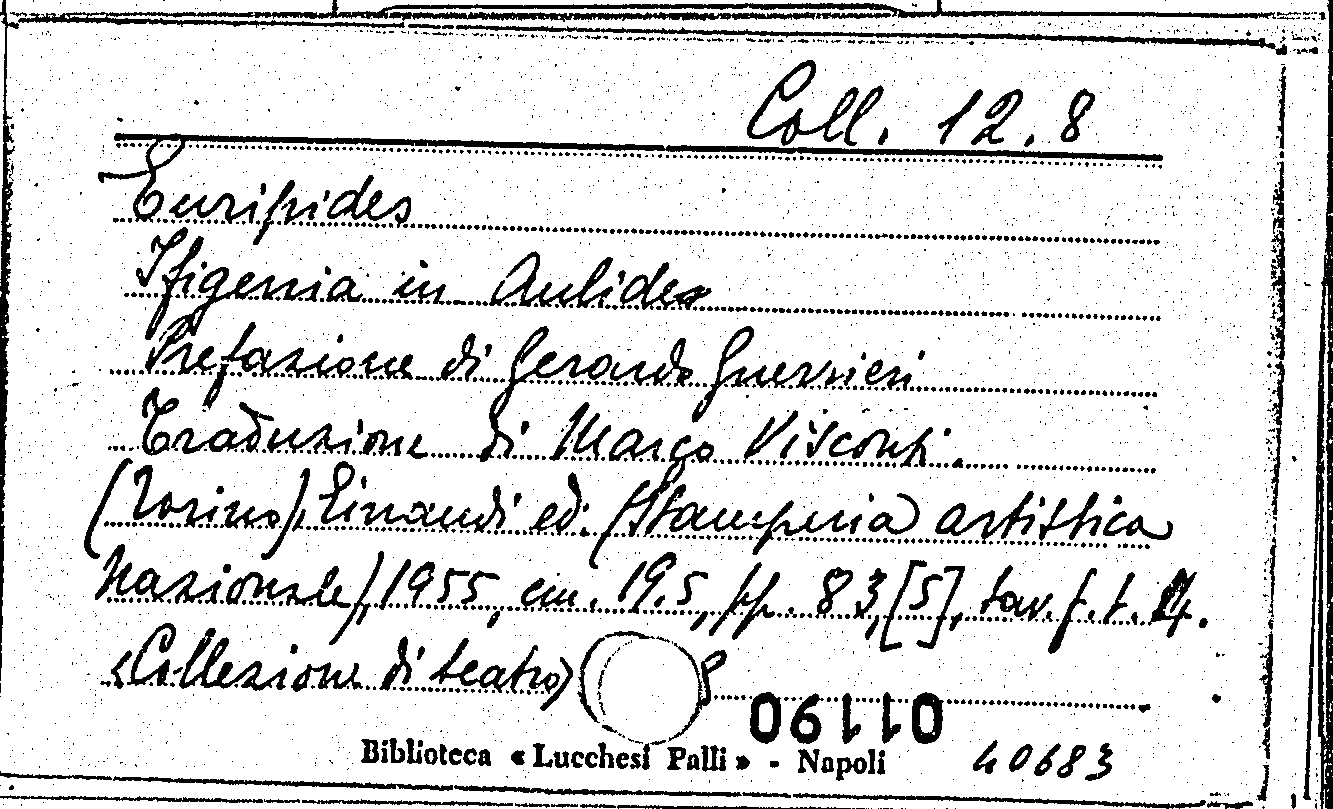 Coll. 12.8
Euripides
Ifigenia in Aulide
Prefazione di Gerardo Guerrieri
Traduzione di Marco Visconti.
(Torino), Einaudi ed. (Stamperia artistica
Nazionale), 1955, cm. 19.5, pp. 83, [5], tav. f. t.
«Collezione di teatro» 8
01190
Biblioteca « Lucchesi Palli » - Napoli 40683